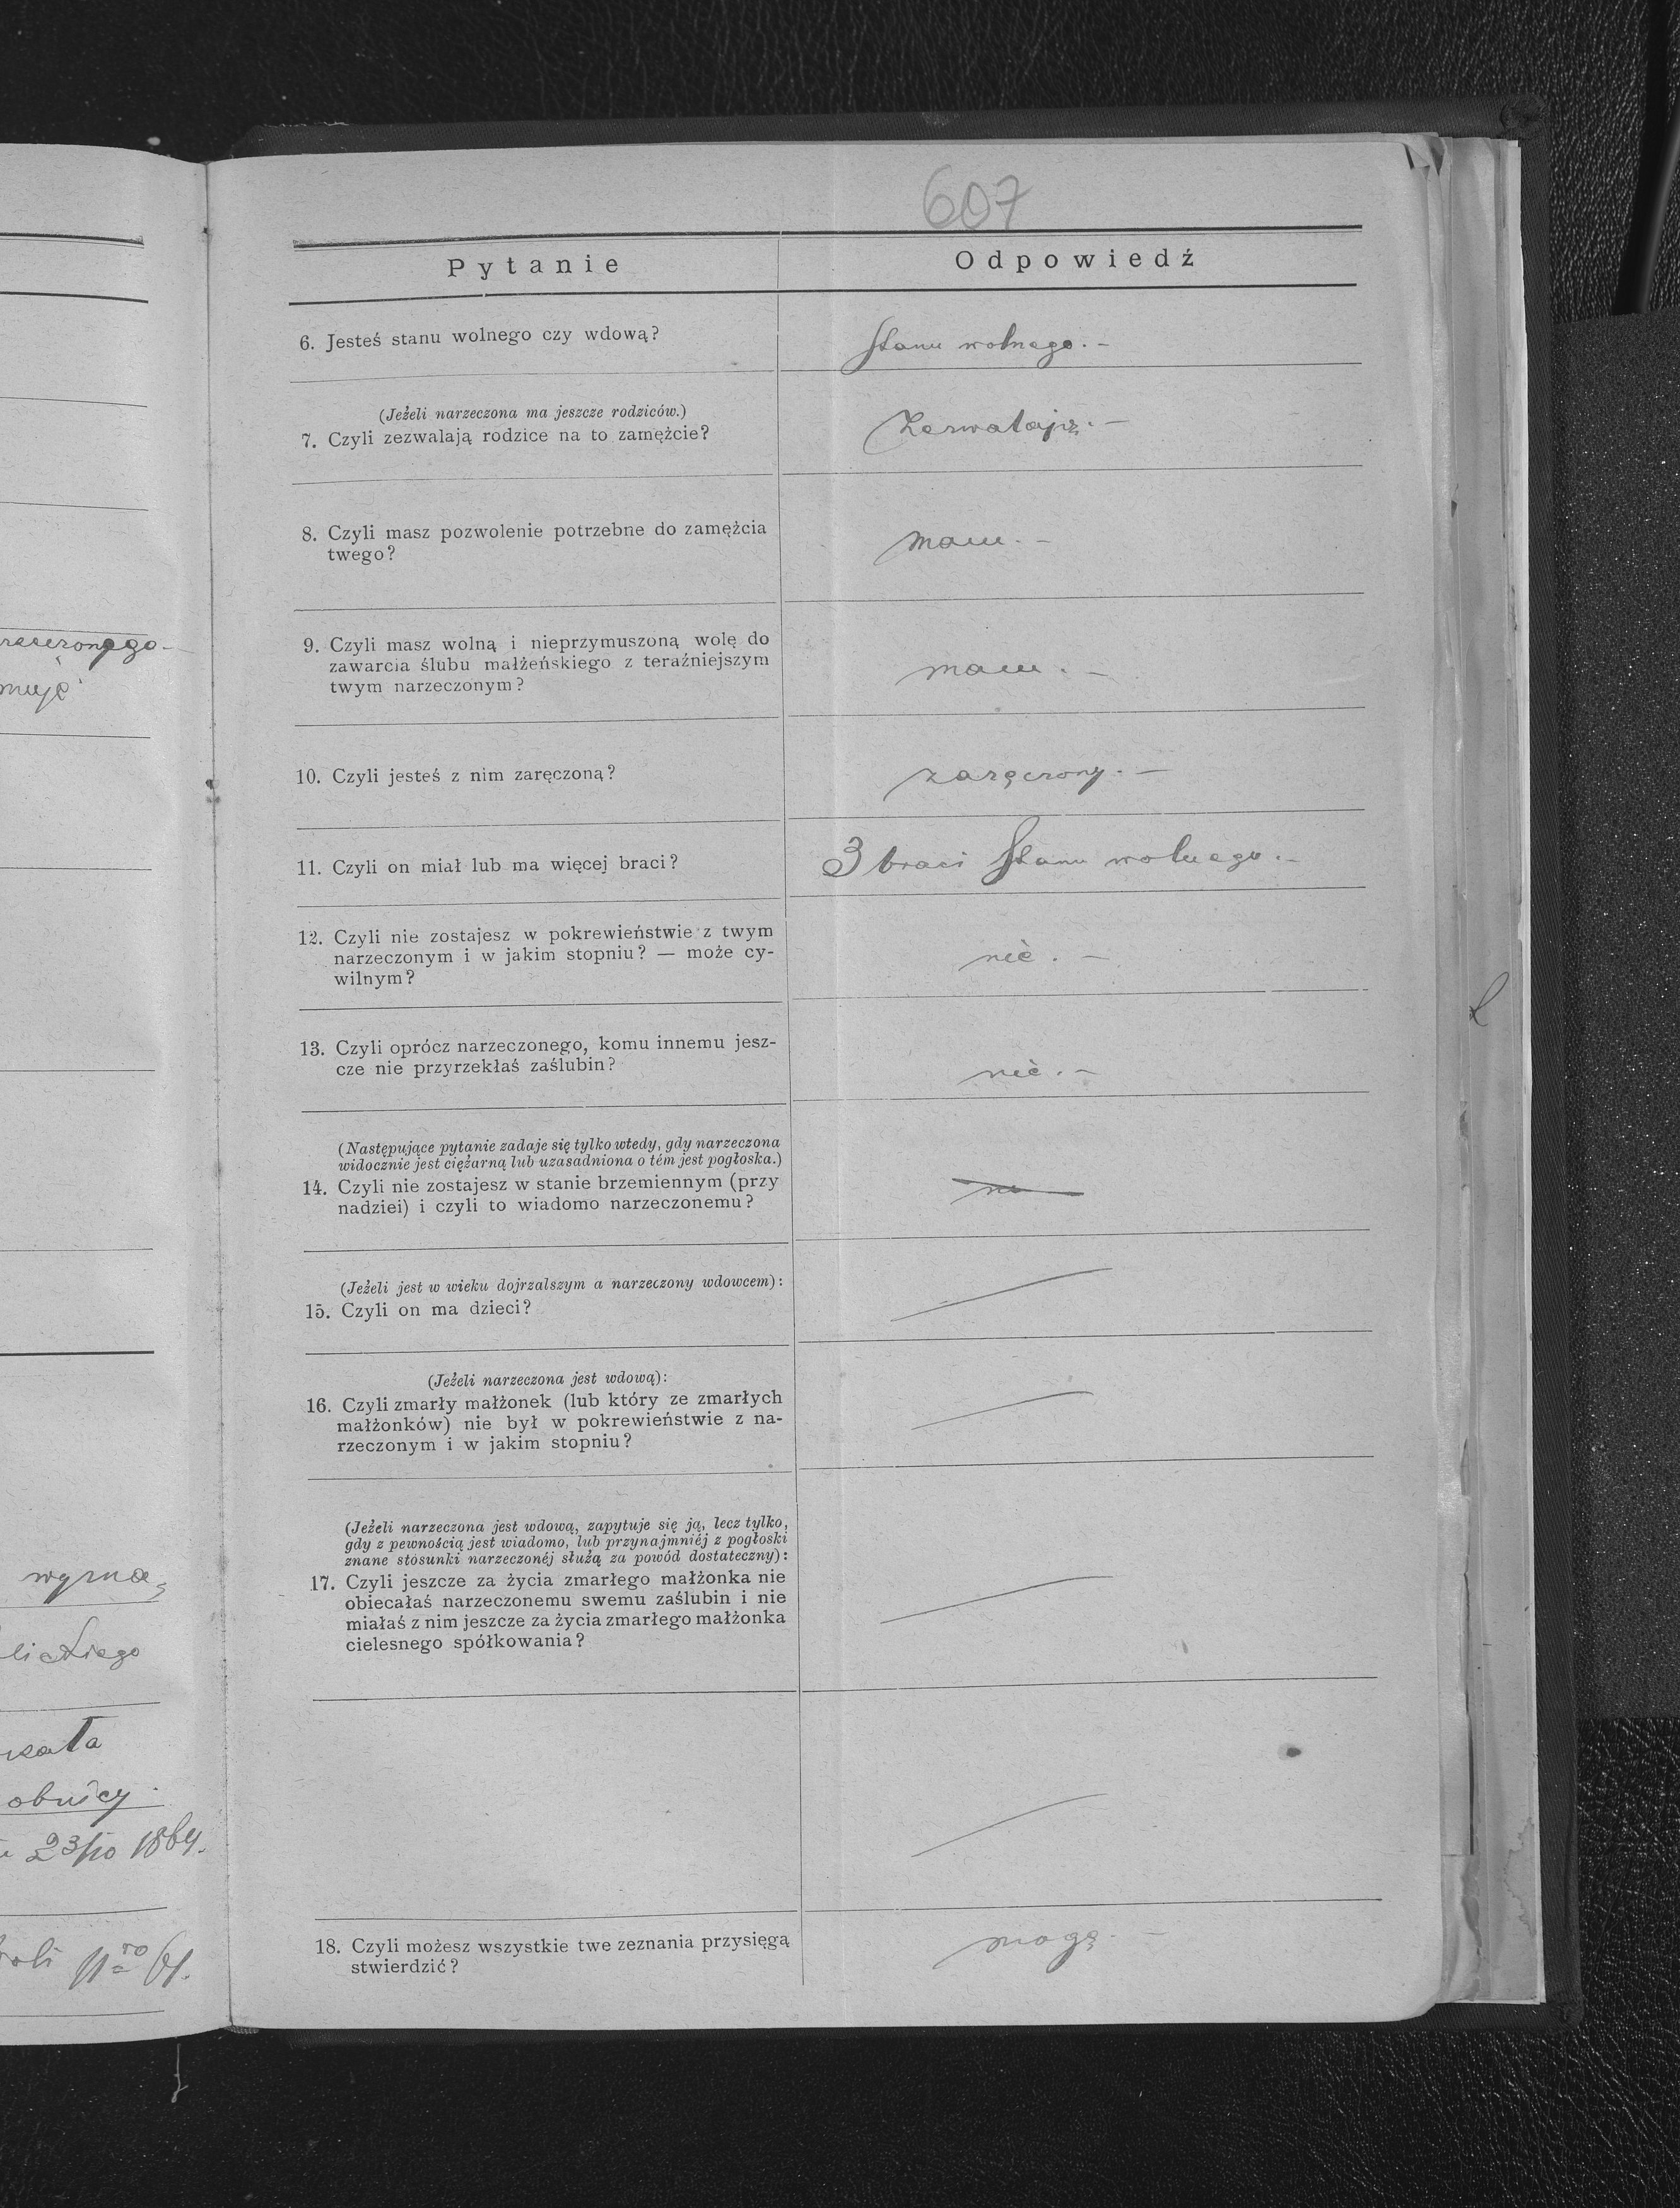 607
Pytanie
Odpowiedź
6. Jesteś stanu wolnego czy wdową?
Stanu wolnego. –
(Jeżeli narzeczona ma jeszcze rodziców.)
7. Czyli zezwalają rodzice na to zamężcie?
Zezwalają. –
8. Czyli masz pozwolenie potrzebne do zamężcia
twego?
mam. –
9. Czyli masz wolną i nieprzymuszoną wolę do
zawarcia ślubu małżeńskiego z teraźniejszym
twym narzeczonym?
mam. –
10. Czyli jesteś z nim zaręczoną?
zaręczony. –
11. Czyli on miał lub ma więcej braci?
3 braci Stanu wolnego. –
12. Czyli nie zostajesz w pokrewieństwie z twym
narzeczonym i w jakim stopniu? — może cy-
wilnym?
nié. –
13. Czyli oprócz narzeczonego, komu innemu jesz-
cze nie przyrzekłaś zaślubin?
nié. –
(Następujące pytanie zadaje się tylko wtedy, gdy narzeczona
widocznie jest ciężarną lub uzasadniona o tém jest pogłoska.)
14. Czyli nie zostajesz w stanie brzemiennym (przy
nadziei) i czyli to wiadomo narzeczonemu?
(Jeżeli jest w wieku dojrzalszym a narzeczony wdowcem):
15. Czyli on ma dzieci?
(Jeżeli narzeczona jest wdową):
16. Czyli zmarły małżonek (lub który ze zmarłych
małżonków) nie był w pokrewieństwie z na-
rzeczonym i w jakim stopniu?
(Jeżeli narzeczona jest wdową, zapytuje się ją, lecz tylko,
gdy z pewnością jest wiadomo, lub przynajmniéj z pogłoski
znane stosunki narzeczonéj służą za powód dostateczny):
17. Czyli jeszcze za życia zmarłego małżonka nie
obiecałaś narzeczonemu swemu zaślubin i nie
miałaś z nim jeszcze za życia zmarłego małżonka
cielesnego spółkowania?
18. Czyli możesz wszystkie twe zeznania przysięgą
stwierdzić?
mogę. –
23/10 1864.